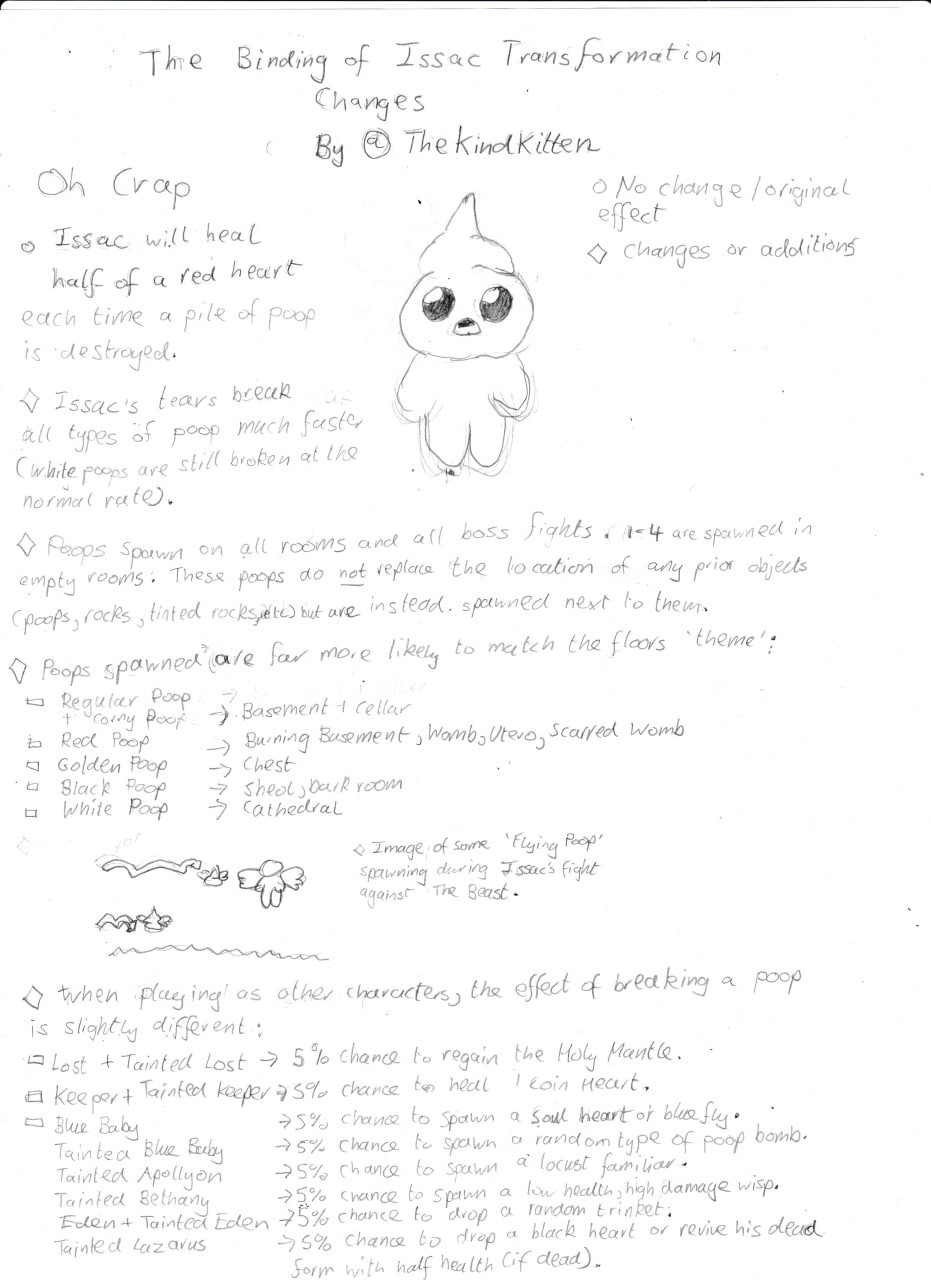 The Binding of Issac Transformation
Changes
By @ TheKindKitten
Oh Crap
○ Issac will heal
half of a red heart
each time a pile of poop
is destroyed.
◇ Issac's tears break
all types of poop much faster
(white poops are still broken at the
normal rate).
○ No change/original
effect
◇ changes or additions
◇ Poops spawn on all rooms and all boss fights. 1-4 are spawned in
empty rooms. These poops do not replace the location of any prior objects
(poops, rocks, tinted rocks, etc) but are instead. spawned next to them.
◇ Poops spawned are far more likely to match the floors 'theme':
▭ Regular Poop
+ Corny Poop → Basement + Cellar
▭ Red Poop → Burning Basement, Womb, Utero, Scarred Womb
▭ Golden Poop → Chest
▭ Black Poop → Sheol, Dark room
▭ White Poop → Cathedral
◇ Image of some 'Flying Poop'
spawning during Issac's fight
against The Beast.
◇ When playing as other characters, the effect of breaking a poop
is slightly different:
▭ Lost + Tainted Lost → 5% chance to regain the Holy Mantle.
▭ Keeper + Tainted Keeper → 5% chance to heal 1 Coin Heart.
▭ Blue Baby → 5% chance to spawn a soul heart or blue fly.
Tainted Blue Baby → 5% chance to spawn a random type of poop bomb.
Tainted Apollyon → 5% chance to spawn a locust familiar.
Tainted Bethany → 5% chance to spawn a low health, high damage wisp.
Eden + Tainted Eden → 5% chance to drop a random trinket.
Tainted Lazarus → 5% chance to drop a black heart or revive his dead
form with half health (if dead).